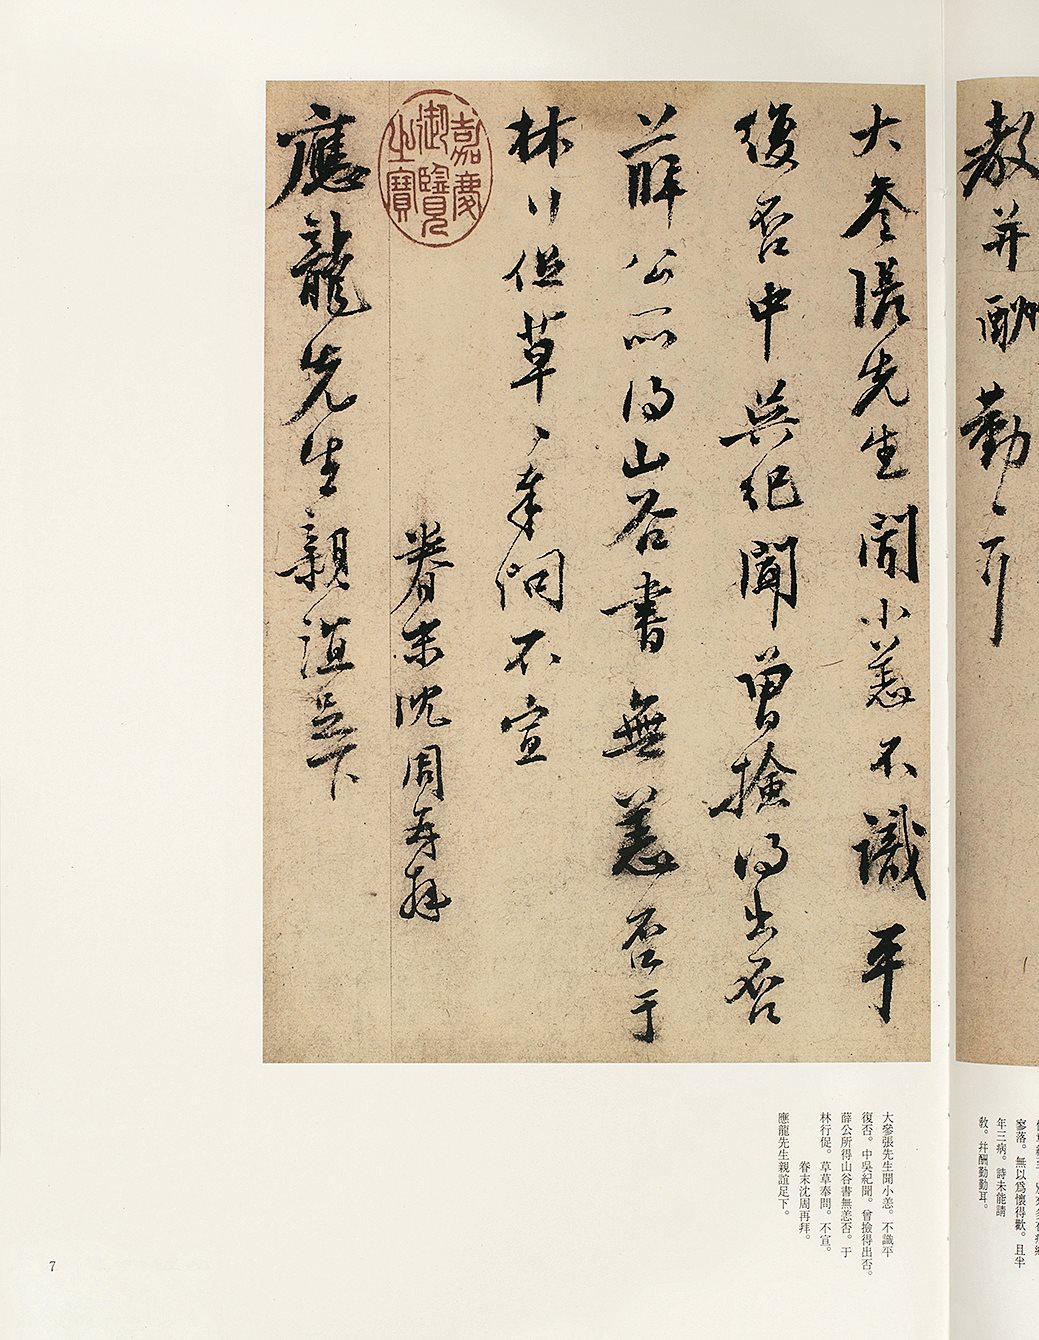 教并酬勤〻耳
大参張先生聞小恙不識平
復否中吳紀聞曾撿得出否
薛公所得山谷書無恙否于
林行促草〻奉問不宣
眷末沈周再拜
應龍先生親誼足下
嘉慶
御覽
之寶
寥落。無以爲懷得歡。且半
年三病。詩未能請
教。幷酬勤勤耳。
大參張先生聞小恙。不識平
復否。中吳紀聞。曾撿得出否。
薛公所得山谷書無恙否。于
林行促。草草奉問。不宣。
眷末沈周再拜。
應龍先生親誼足下。
7